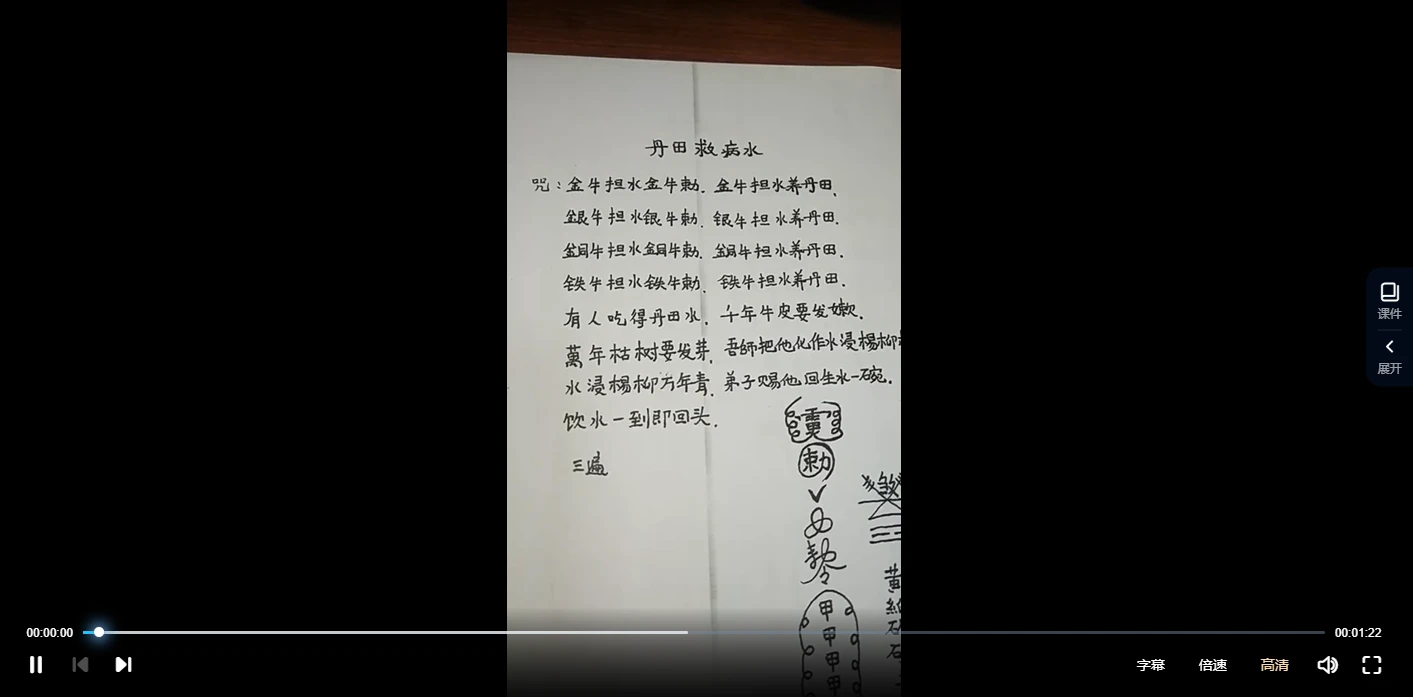 丹田救病水
咒:金牛担水金牛勅.金牛担水养丹田.
銀牛担水银牛勅.银牛担水养丹田.
銅牛担水銅牛勅.銅牛担水养丹田.
铁牛担水铁牛勅.铁牛担水养丹田.
有人吃得丹田水.千年牛皮要发嫩.
萬年枯树要发芽.吾師把他化作水浸楊柳
水浸楊柳万年青.弟子赐他回生水一碗.
饮水一到即回头.
三遍
勅
甲
甲
甲
甲
黄
课件
展开
00:00:00
00:01:22
字幕 倍速 高清